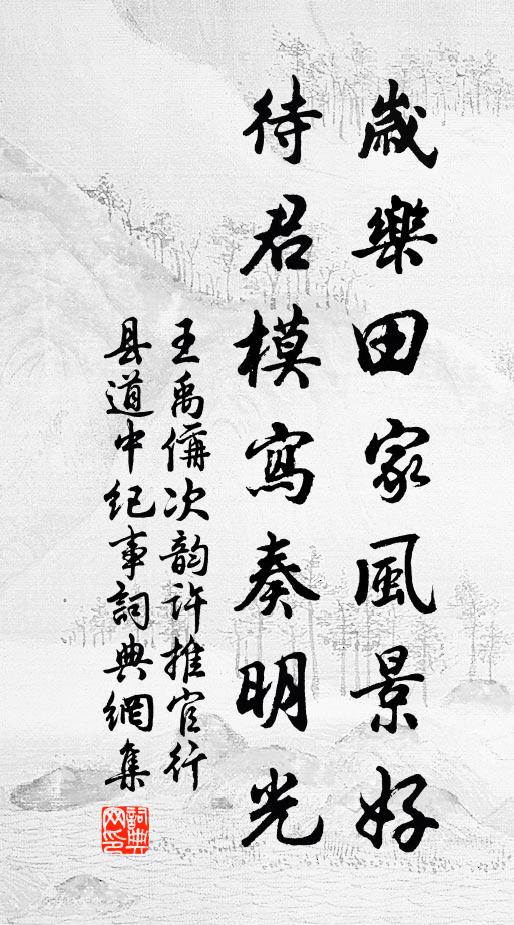 歲樂田家風景好
待君模寫奏明光
王禹偁次韵許推官行
县道中紀事詞典網集
詞典
网印